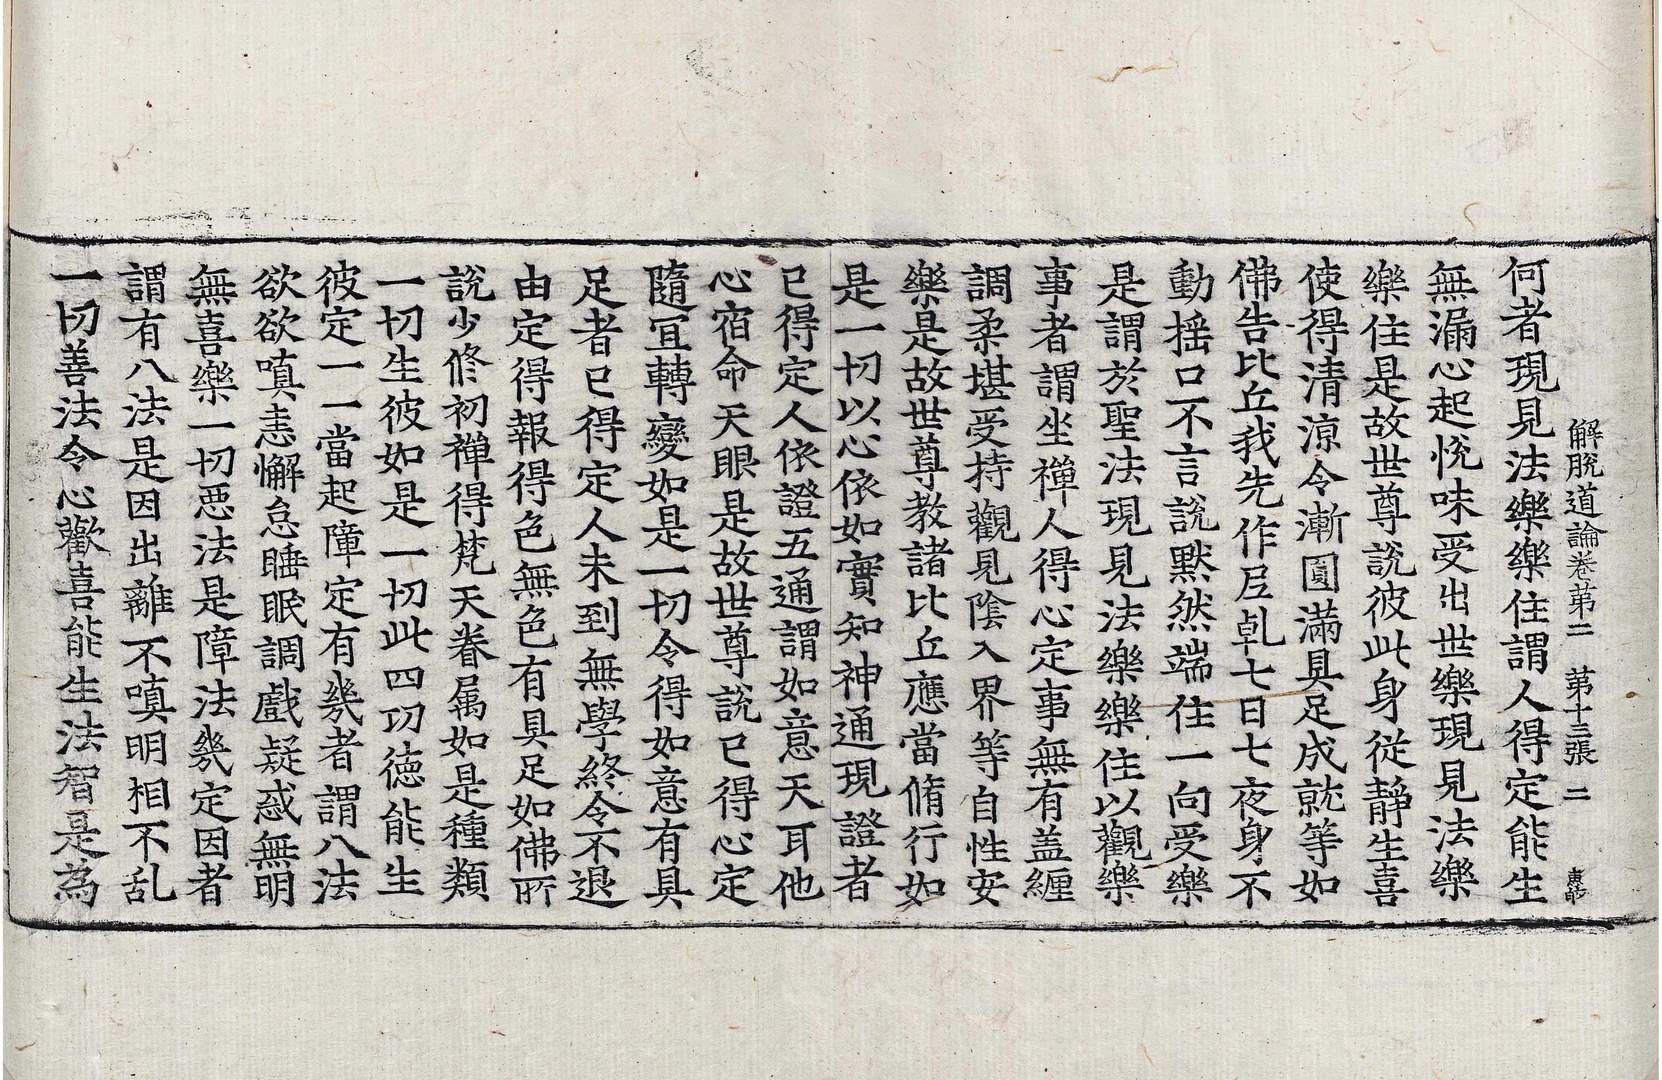 解脫道論卷第二 第十三張 二
何者現見法樂樂住謂人得定能生
無漏心起悅味受出世樂現見法樂
樂住是故世尊說彼此身從靜生喜
使得清涼令漸圓滿具足成就等如
佛告比丘我先作尼乹七日七夜身不
動搖口不言說默然端住一向受樂
是謂於聖法現見法樂樂住以觀樂
事者謂坐禪人得心定事無有盖纏
調柔堪受持觀見陰入界等自性安
樂是故世尊教諸比丘應當脩行如
是一切以心依如實知神通現證者
已得定人依證五通謂如意天耳他
心宿命天眼是故世尊說已得心定
隨冝轉變如是一切令得如意有具
足者已得定人未到無學終令不退
由定得報得色無色有具足如佛所
說少修初禪得梵天眷属如是種類
一切生彼如是一切此四功徳能生
彼定一一當起障定有幾者謂八法
欲欲嗔恚懈怠睡眠調戲疑惑無明
無喜樂一切惡法是障法幾定因者
謂有八法是因出離不嗔明相不乱
一切善法令心歡喜能生法智是為